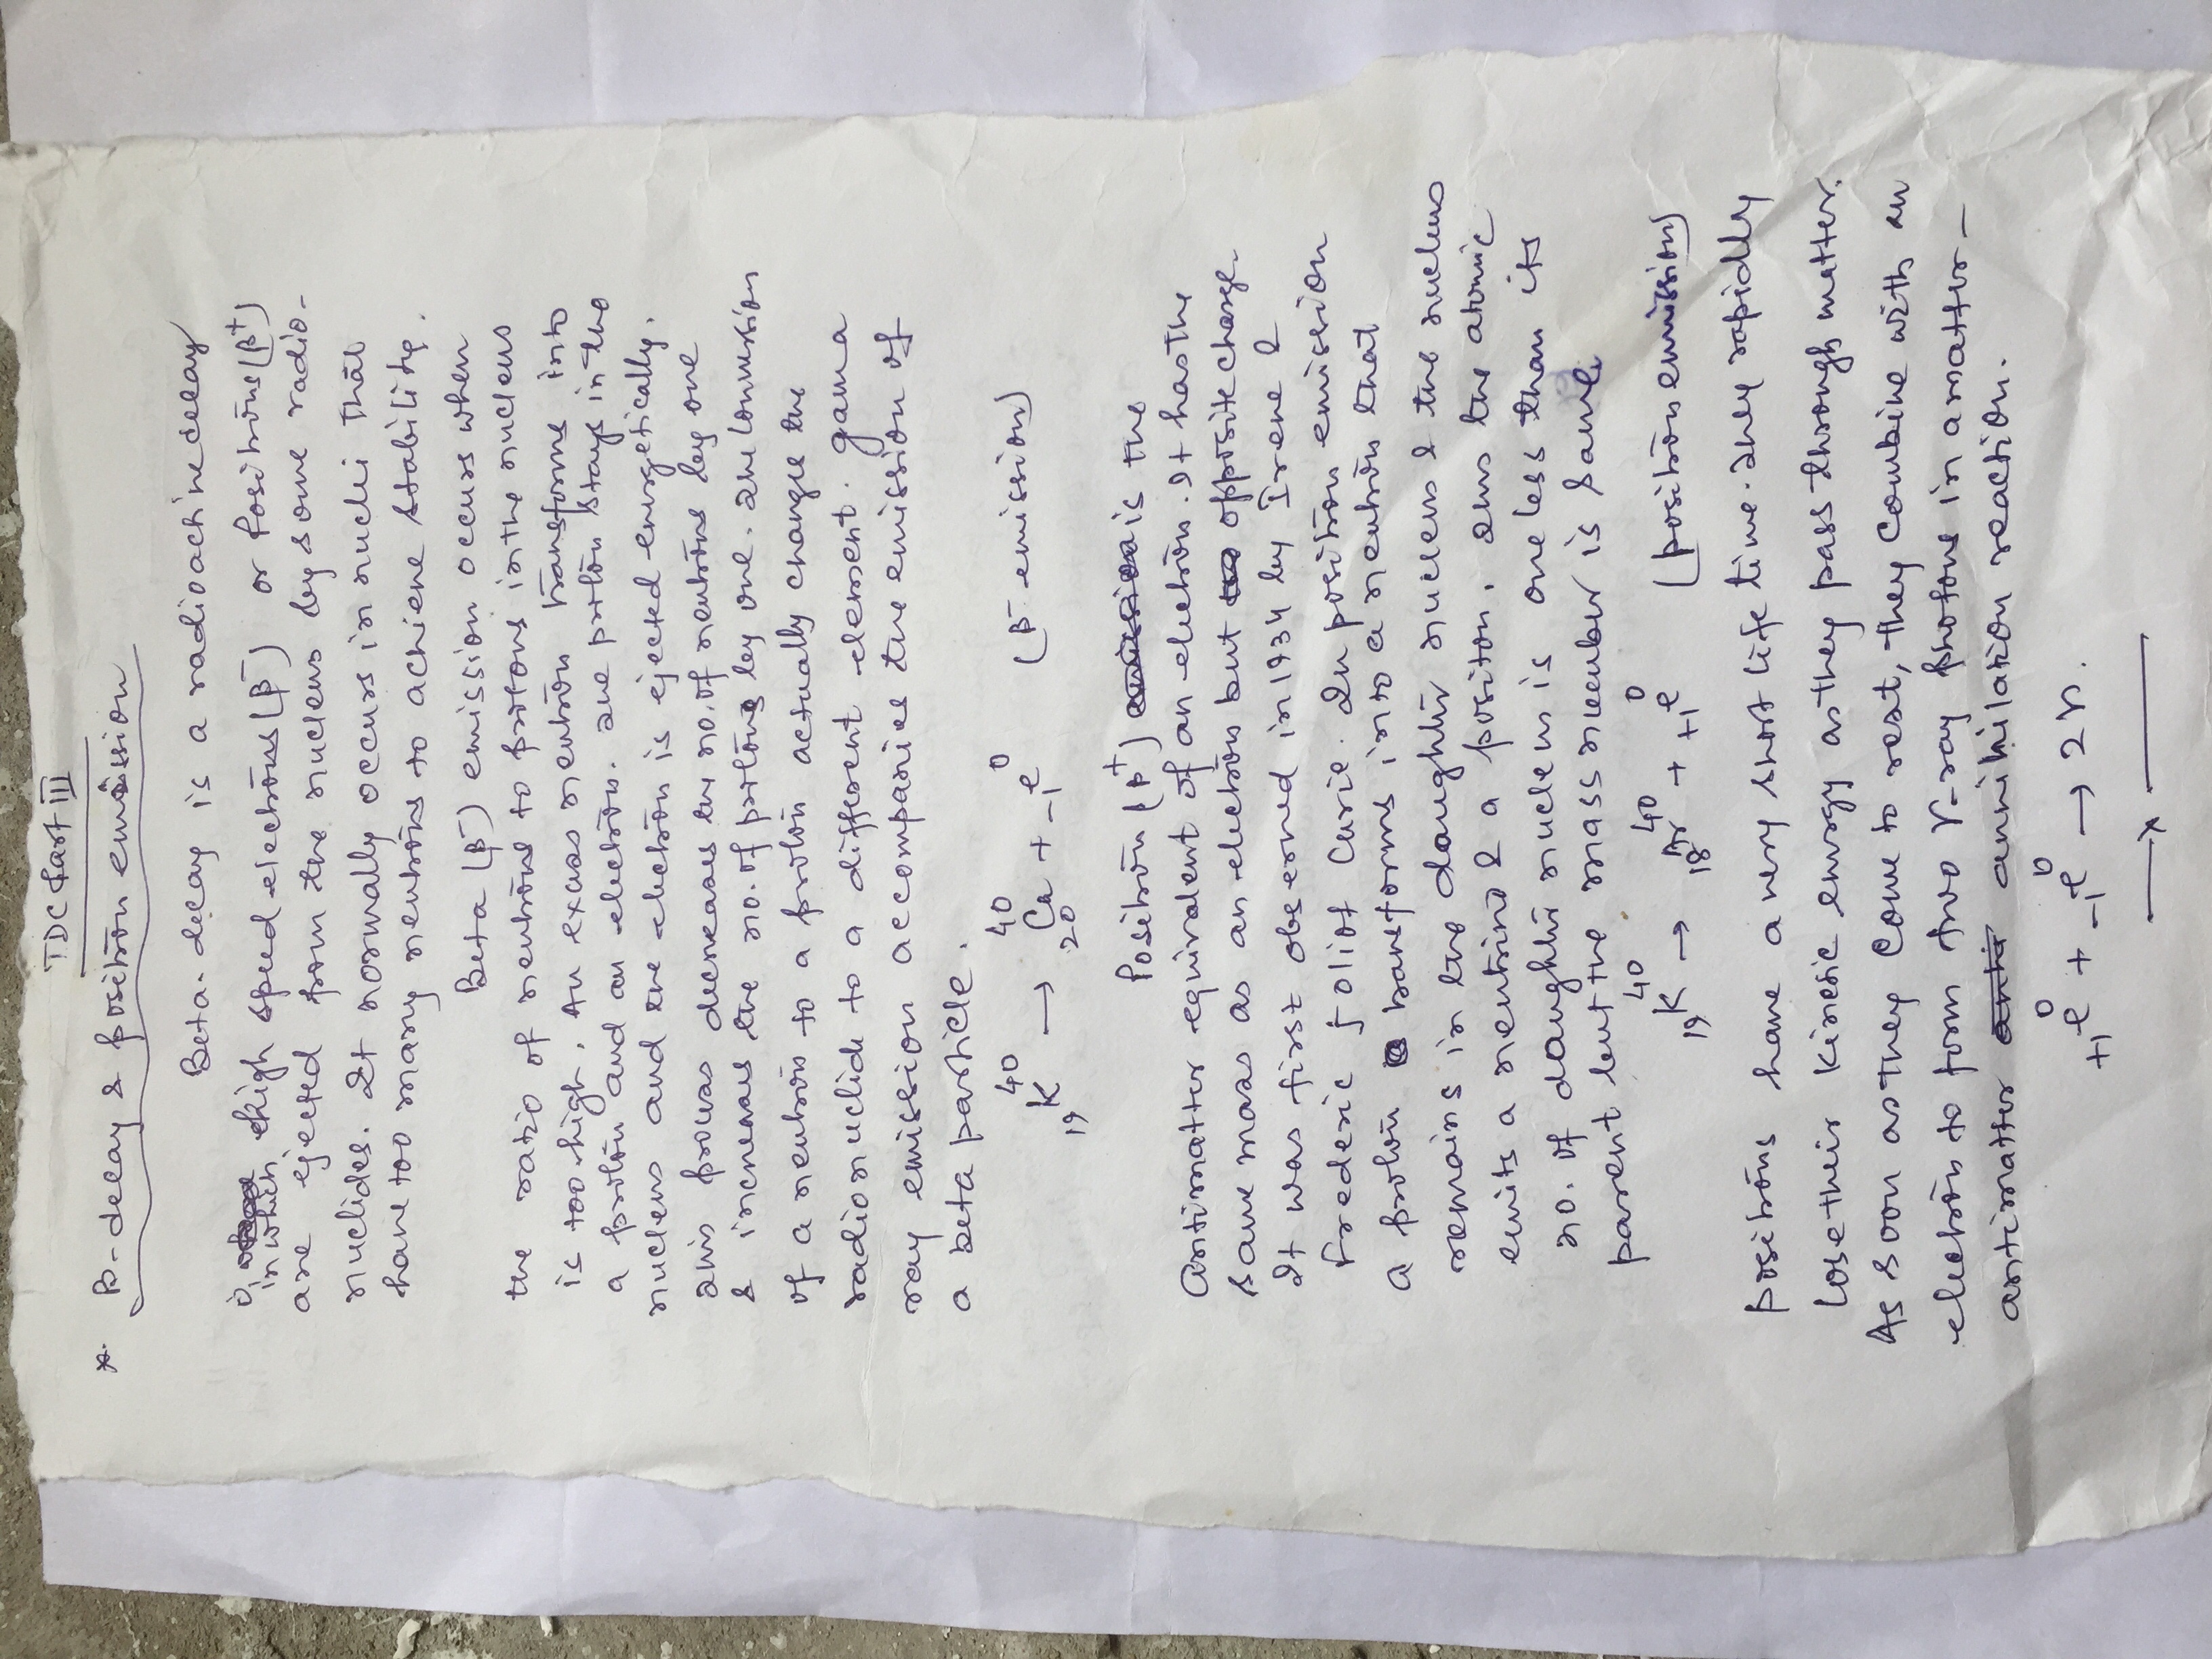 TDC Part III
* B-decay & Positron emission
Beta-decay is a radioactive decay
in which high speed electrons (β⁻) or Positrons (β⁺)
are ejected from the nucleus by some radio-
nuclides. It normally occurs in nuclei that
have too many neutrons to achieve stability.
Beta (β⁻) emission occurs when
the ratio of neutrons to protons in the nucleus
is too high. An excess neutron transforms into
a proton and an electron. The proton stays in the
nucleus and the electron is ejected energetically.
This process decreases the no. of neutrons by one
& increases the no. of protons by one. The conversion
of a neutron to a proton actually changes the
radionuclide to a different element. gama
ray emission accompanies the emission of
a beta particle.
₁₉K⁴⁰ → ₂₀Ca⁴⁰ + ₋₁e⁰ (β⁻ emission)
Positron (β⁺) is the
Antimatter equivalent of an electron. It has the
same mass as an electron but opposite charge.
It was first observed in 1934 by Irene &
Frederic Joliot Curie. In positron emission
a proton transforms into a neutron that
remains in the daughter nucleus & the nucleus
emits a neutrino & a positon. Thus the atomic
no. of daughter nucleus is one less than its
parent but the mass number is same.
₁₉K⁴⁰ → ₁₈Ar⁴⁰ + ₊₁e⁰ (positron emission)
positrons have a very short life time. They rapidly
lose their kinetic energy as they pass through matter.
As soon as they come to rest, they combine with an
electron to form two γ-ray photons in a matter-
antimatter annihilation reaction.
₊₁e⁰ + ₋₁e⁰ → 2γ.
x